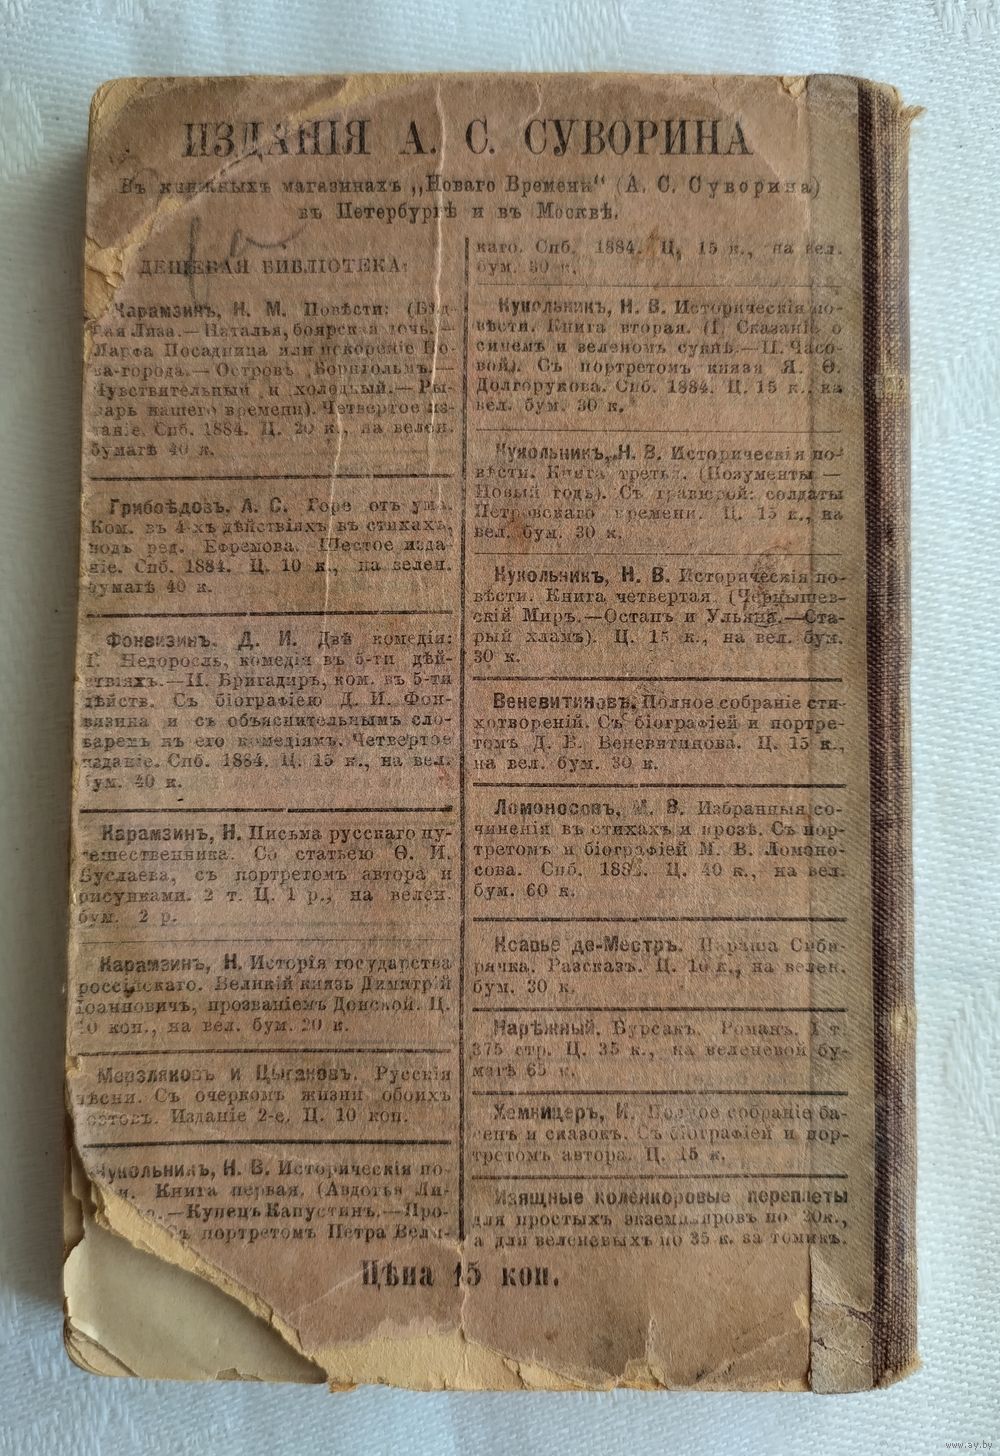 ИЗДАНІЯ А. С. СУВОРИНА
Въ книжныхъ магазинахъ „Новаго Времени“ (А. С. Суворина)
въ Петербургѣ и въ Москвѣ.
ДЕШЕВАЯ БИБЛІОТЕКА:
Карамзинъ, Н. М. Повѣсти: (Бѣд-
ная Лиза.—Наталья, боярская дочь.—
Марфа Посадница или покореніе Но-
ва-города.—Островъ Борнгольмъ.—
Чувствительный и холодный.—Ры-
царь нашего времени). Четвертое из-
даніе. Спб. 1884. Ц. 20 к., на велен.
бумагѣ 40 к.
Грибоѣдовъ, А. С. Горе отъ ума.
Ком. въ 4-хъ дѣйствіяхъ въ стихахъ,
подъ ред. Ефремова. Шестое изда-
ніе. Спб. 1884. Ц. 10 к., на велен.
бумагѣ 40 к.
Фонвизинъ, Д. И. Двѣ комедіи:
I. Недоросль, комедія въ 5-ти дѣй-
ствіяхъ.—II. Бригадиръ, ком. въ 5-ти
дѣйств. Съ біографіею Д. И. Фон-
визина и съ объяснительнымъ сло-
варемъ къ его комедіямъ. Четвертое
изданіе. Спб. 1884. Ц. 15 к., на вел.
бум. 40 к.
Карамзинъ, Н. Письма русскаго пу-
тешественника. Со статьею Ѳ. И.
Буслаева, съ портретомъ автора и
рисунками. 2 т. Ц. 1 р., на велен.
бум. 2 р.
Карамзинъ, Н. Исторія государства
россійскаго. Великій князь Димитрій
Іоанновичъ, прозваніемъ Донской. Ц.
коп., на вел. бум. 20 к.
Мерзляковъ и Цыгановъ. Русскія
пѣсни. Съ очеркомъ жизни обоихъ
поэтовъ. Изданіе 2-е. Ц. 10 коп.
Кукольникъ, Н. В. Историческія по-
Книга первая. (Авдотья Ли-
—Купецъ Капустинъ.—Про-
Съ портретомъ Петра Вели-
каго. Спб. 1884. Ц. 15 к., на вел.
бум. 30 к.
Кукольникъ, Н. В. Историческія по-
вѣсти. Книга вторая. (I. Сказаніе о
синемъ и зеленомъ сукнѣ.—II. Часо-
вой). Съ портретомъ князя Я. Ѳ.
Долгорукова. Спб. 1884. Ц. 15 к., на
вел. бум. 30 к.
Кукольникъ, Н. В. Историческія по-
вѣсти. Книга третья. (Позументы —
Новый годъ). Съ гравюрой: солдаты
Петровскаго времени. Ц. 15 к., на
вел. бум. 30 к.
Кукольникъ, Н. В. Историческія по-
вѣсти. Книга четвертая. (Чернышев-
скій Миръ.—Остапъ и Ульяна.—Ста-
рый хламъ). Ц. 15 к., на вел. бум.
30 к.
Веневитиновъ. Полное собраніе сти-
хотвореній. Съ біографіей и портре-
томъ Д. В. Веневитинова. Ц. 15 к.,
на вел. бум. 30 к.
Ломоносовъ, М. В. Избранныя со-
чиненія въ стихахъ и прозѣ. Съ пор-
третомъ и біографіей М. В. Ломоно-
сова. Спб. 1882. Ц. 40 к., на вел.
бум. 60 к.
Ксавье де-Местръ. Параша Сиби-
рячка. Разсказъ. Ц. 10 к., на велен.
бум. 30 к.
Нарѣжный. Бурсакъ. Романъ. 1 т.
375 стр. Ц. 35 к., на веленевой бу-
магѣ 65 к.
Хемницеръ, И. Полное собраніе ба-
сенъ и сказокъ. Съ біографіей и пор-
третомъ автора. Ц. 15 к.
Изящные коленкоровые переплеты
для простыхъ экземпляровъ по 20к.,
а для веленевыхъ по 35 к. за томикъ.
Цѣна 15 коп.
www.ay.by